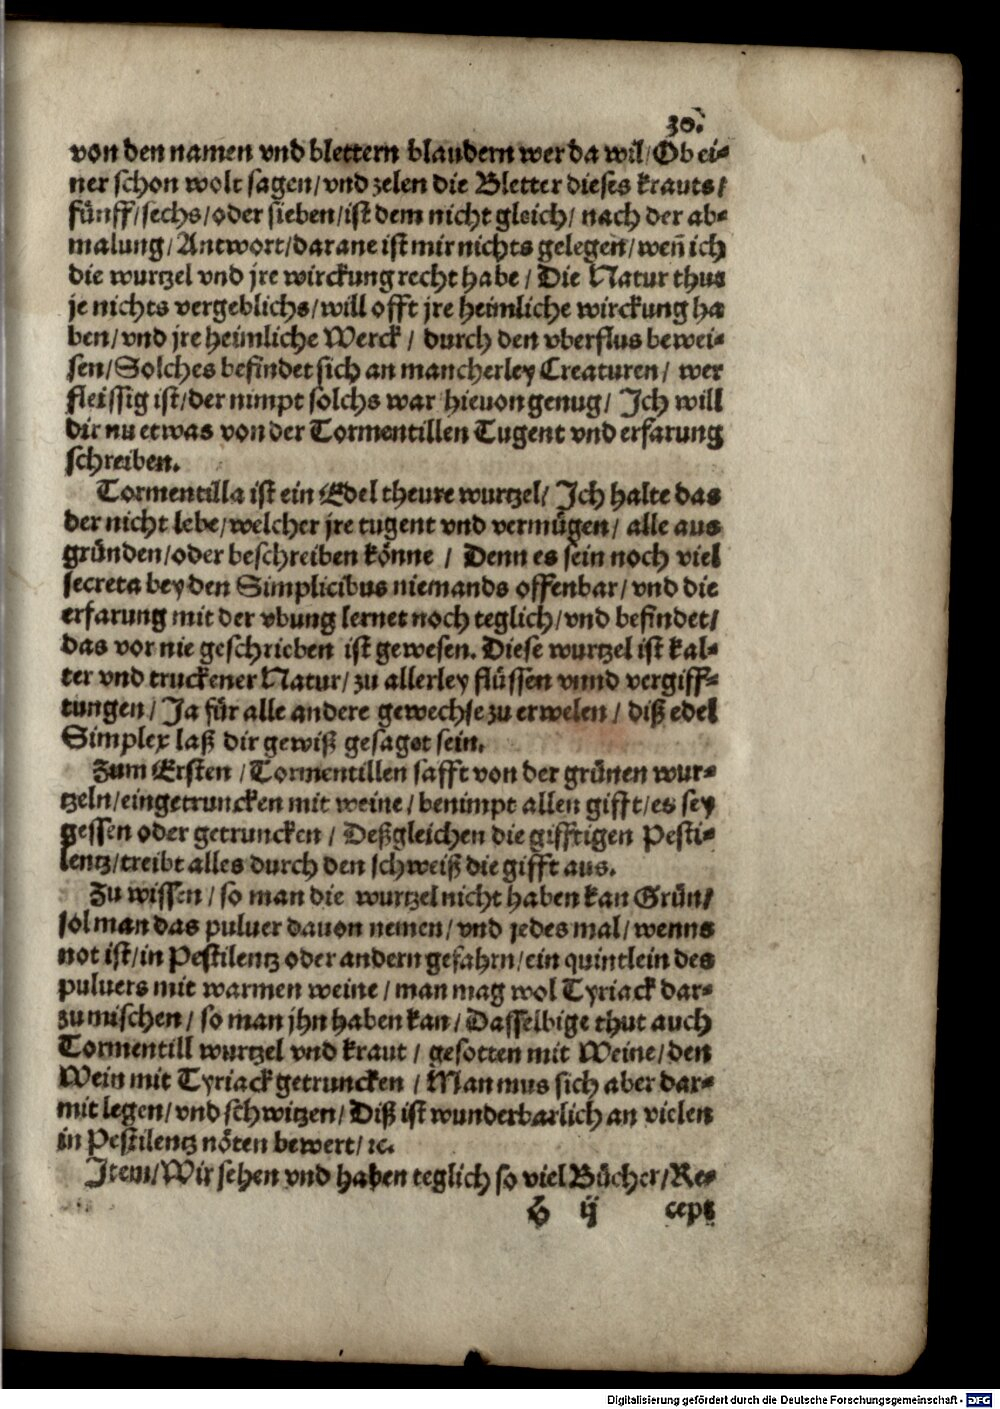 30.
von den namen vnd blettern blaudern wer da wil/ Ob ei-
ner schon wolt sagen/ vnd zelen die Bletter dieses krauts/
fünff/ sechs/ oder sieben/ ist dem nicht gleich/ nach der ab-
malung/ Antwort/ darane ist mir nichts gelegen/ wen̄ ich
die wurtzel vnd jre wirckung recht habe / Die Natur thus
je nichts vergeblichs/ will offt jre heimliche wirckung ha
ben/ vnd jre heimliche Werck / durch den vberflus bewei-
sen/ Solches befindet sich an mancherley Creaturen/ wer
fleissig ist/ der nimpt solchs war hieuon genug/ Ich will
dir nu etwas von der Tormentillen Tugent vnd erfarung
schreiben.
Tormentilla ist ein Edel theure wurtzel/ Ich halte das
der nicht lebe/ welcher jre tugent vnd vermügen/ alle aus
gründen/ oder beschreiben könne / Denn es sein noch viel
secreta bey den Simplicibus niemands offenbar/ vnd die
erfarung mit der vbung lernet noch teglich/ vnd befindet/
das vor nie geschrieben ist gewesen. Diese wurtzel ist kal-
ter vnd truckener Natur/ zu allerley flüssen vnnd vergiff-
tungen/ Ja für alle andere gewechse zu erwelen / diß edel
Simplex laß dir gewiß gesaget sein.
Zum Ersten / Tormentillen safft von der grünen wur-
tzeln/ eingetruncken mit weine/ benimpt allen gifft/ es sey
gessen oder getruncken / Deßgleichen die gifftigen Pesti-
lentz/ treibt alles durch den schweiß die gifft aus.
Zu wissen / so man die wurtzel nicht haben kan Grün/
sol man das puluer dauon nemen/ vnd jedes mal/ wenns
not ist/ in Pestilentz oder andern gefahrn/ ein quintlein des
puluers mit warmen weine / man mag wol Tyriack dar-
zu mischen/ so man jhn haben kan/ Dasselbige thut auch
Tormentill wurtzel vnd kraut / gesotten mit Weine/ den
Wein mit Tyriack getruncken / Man mus sich aber dar-
mit legen/ vnd schwitzen/ Diß ist wunderbarlich an vielen
in Pestilentz nöten bewert/ ꝛc.
Item/ Wir sehen vnd haben teglich so viel Bücher/ Re-
h ij cept
Digitalisierung gefördert durch die Deutsche Forschungsgemeinschaft - DFG